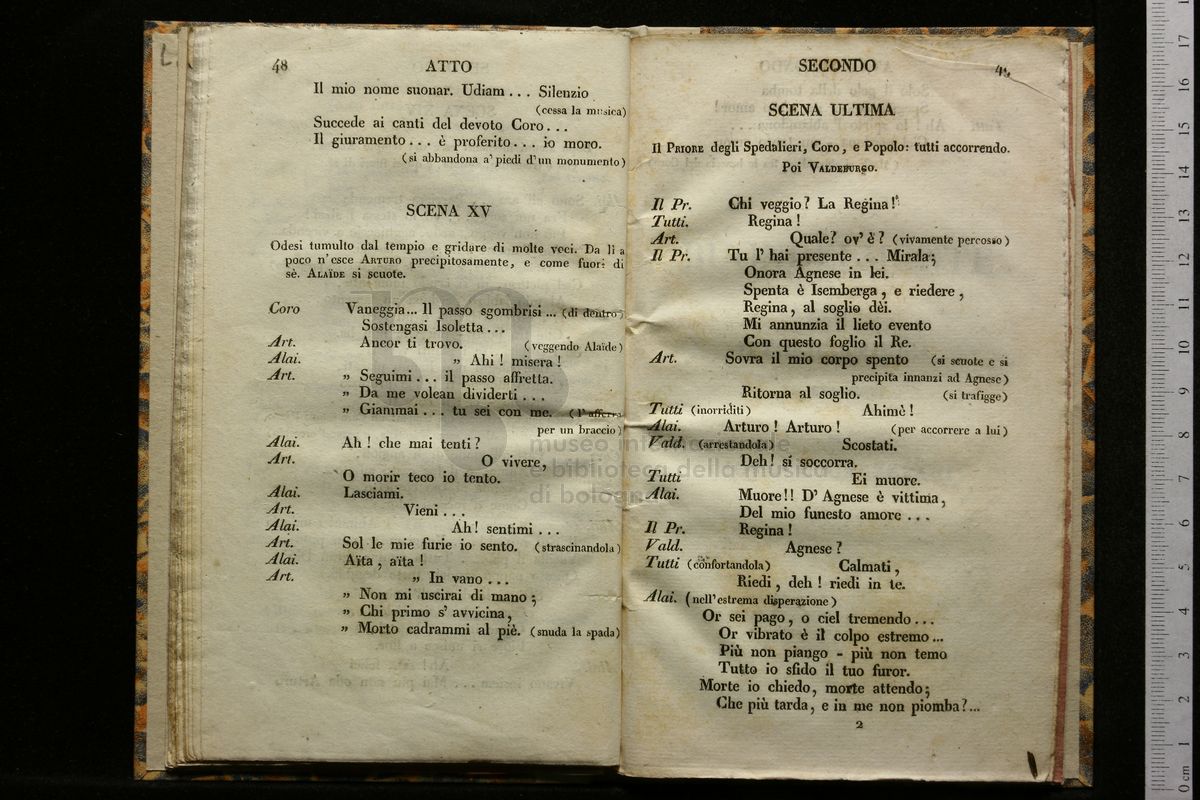 48
ATTO
Il mio nome suonar. Udiam... Silenzio
(cessa la musica)
Succede ai canti del devoto Coro...
Il giuramento... è proferito... io moro.
(si abbandona a' piedi d'un monumento)
SCENA XV
Odesi tumulto dal tempio e gridare di molte voci. Da lì a
poco n'esce ARTURO precipitosamente, e come fuori di
sè. ALAIDE si scuote.
Coro Vaneggia... Il passo sgombrisi... (di dentro)
Sostengasi Isoletta...
Art. Ancor ti trovo. (veggendo Alaïde)
Alai. „ Ahi! misera!
Art. „ Seguimi... il passo affretta.
„ Da me volean dividerti...
„ Giammai... tu sei con me. (l'afferra
per un braccio)
Alai. Ah! che mai tenti?
Art. O vivere,
O morir teco io tento.
Alai. Lasciami.
Art. Vieni...
Alai. Ah! sentimi...
Art. Sol le mie furie io sento. (strascinandola)
Alai. Aïta, aïta!
Art. „ In vano...
„ Non mi uscirai di mano;
„ Chi primo s'avvicina,
„ Morto cadrammi al piè. (snuda la spada)
SECONDO
49
SCENA ULTIMA
Il PRIORE degli Spedalieri, Coro, e Popolo: tutti accorrendo.
Poi VALDEBURGO.
Il Pr. Chi veggio? La Regina!
Tutti. Regina!
Art. Quale? ov'è? (vivamente percosso)
Il Pr. Tu l'hai presente... Mirala;
Onora Agnese in lei.
Spenta è Isemberga, e riedere,
Regina, al soglio dèi.
Mi annunzia il lieto evento
Con questo foglio il Re.
Art. Sovra il mio corpo spento (si scuote e si
precipita innanzi ad Agnese)
Ritorna al soglio. (si trafigge)
Tutti (inorriditi) Ahimè!
Alai. Arturo! Arturo! (per accorrere a lui)
Vald. (arrestandola) Scostati.
Deh! si soccorra.
Tutti Ei muore.
Alai. Muore!! D'Agnese è vittima,
Del mio funesto amore...
Il Pr. Regina!
Vald. Agnese?
Tutti (confortandola) Calmati,
Riedi, deh! riedi in te.
Alai. (nell'estrema disperazione)
Or sei pago, o ciel tremendo...
Or vibrato è il colpo estremo...
Più non piango - più non temo
Tutto io sfido il tuo furor.
Morte io chiedo, morte attendo;
Che più tarda, e in me non piomba?...
2
museo internazionale
e biblioteca della musica
di bologna
0 cm 1 2 3 4 5 6 7 8 9 10 11 12 13 14 15 16 17